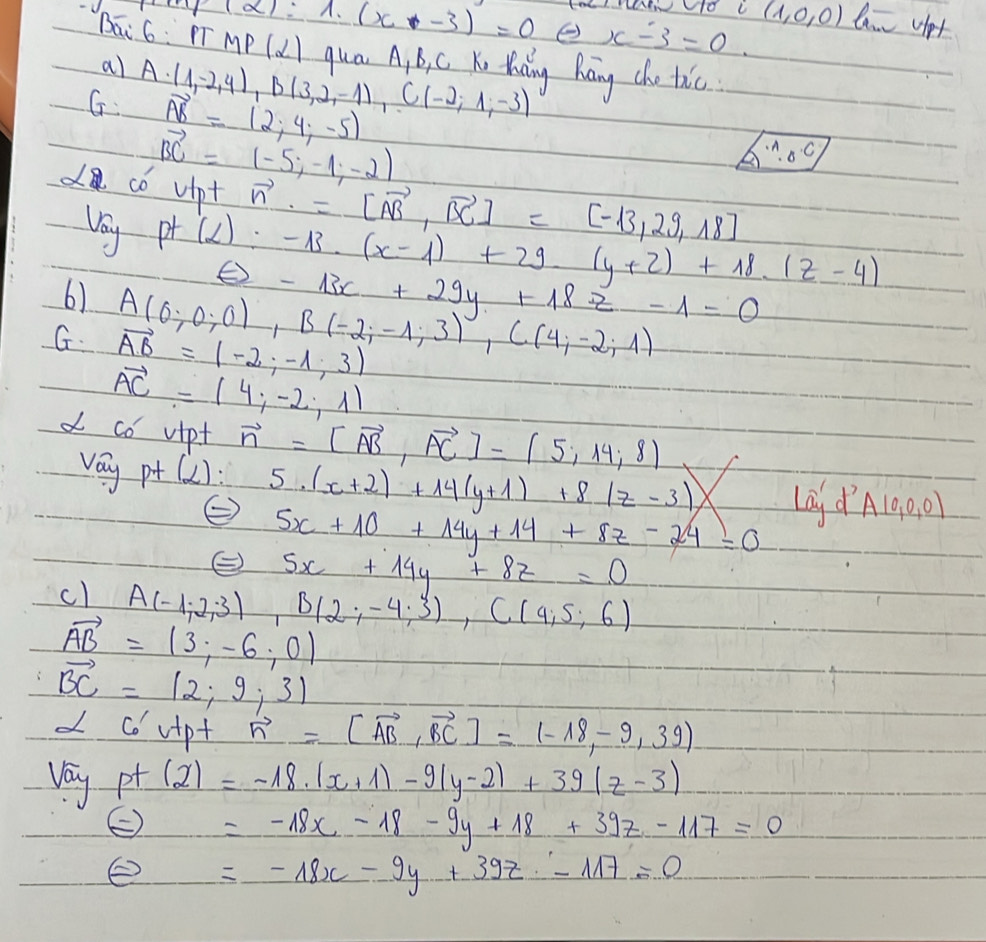 (α): 1. (x - 3) = 0 ⇔ x - 3 = 0.
(1,0,0) làm vtpt
Bài 6: PT MP (α) qua A, B, C ko thẳng hàng cho trước:
a) A.(1,-2,4), B(3,2,-1), C(-2; 1; -3)
G: AB→ = (2; 4; -5)
BC→ = (-5; -1; -2)
α có vtpt n→ = [AB→, BC→] = [-13, 29, 18]
Vậy pt (α): -13. (x - 1) + 29 (y + 2) + 18. (z - 4)
⇔ - 13x + 29y + 18z - 1 = 0
b) A(0; 0; 0), B(-2; -1; 3), C(4; -2; 1)
G: AB→ = (-2; -1; 3)
AC→ = (4; -2; 1)
α có vtpt n→ = [AB→, AC→] = (5; 14; 8)
Vậy pt (α): 5.(x+2) + 14(y+1) + 8.(z - 3) Lấy đ' A(0,0,0)
⇔ 5x + 10 + 14y + 14 + 8z - 24 = 0
⇔ 5x + 14y + 8z = 0
c) A(-1; 2; 3), B(2; -4; 3), C(4; 5; 6)
AB→ = (3; -6; 0)
BC→ = (2; 9; 3)
α có vtpt n→ = [AB→, BC→] = (-18, -9, 39)
Vậy pt (α) = -18.(x+1) - 9(y-2) + 39(z-3)
⇔ = -18x - 18 - 9y + 18 + 39z - 117 = 0
⇔ = -18x - 9y + 39z - 117 = 0